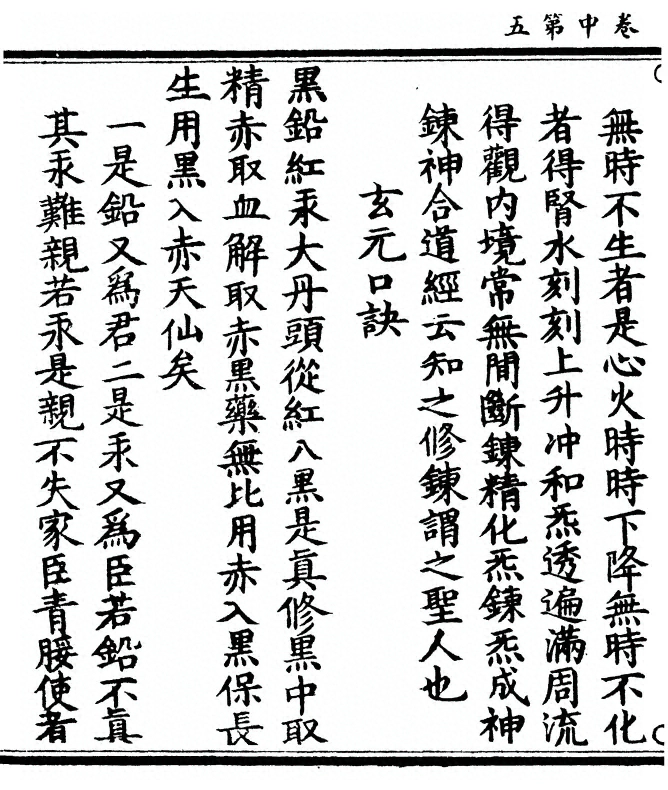 卷中第五
無時不生者是心火時時下降無時不化
者得腎水刻刻上升冲和炁透遍滿周流
得觀内境常無間斷鍊精化炁鍊炁成神
鍊神合道經云知之修鍊謂之聖人也
玄元口訣
黑鉛紅汞大丹頭從紅入黑是眞修黑中取
精赤取血解取赤黑藥無比用赤入黑保長
生用黑入赤天仙矣
一是鉛又爲君二是汞又爲臣若鉛不眞
其汞難親若汞是親不失家臣青腰使者